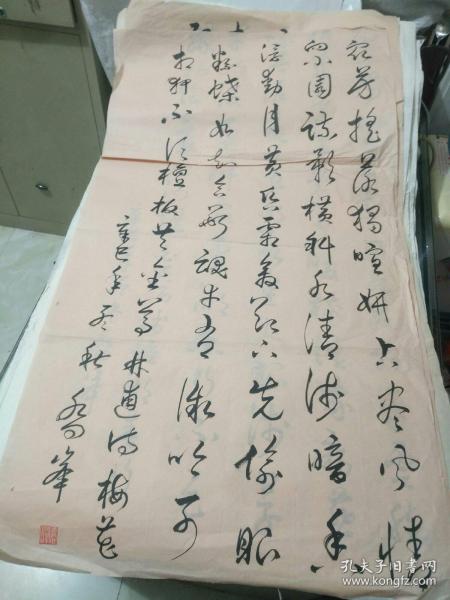 眾芳搖落獨暄妍占盡風情
向小園疏影橫斜水清淺暗香
浮動月黃昏霜禽欲下先偷眼
粉蝶如知合斷魂幸有微吟可
相狎不須檀板共金尊林逋詩梅花
辛巳年孟秋
孔夫子旧书网
www.kongfz.com